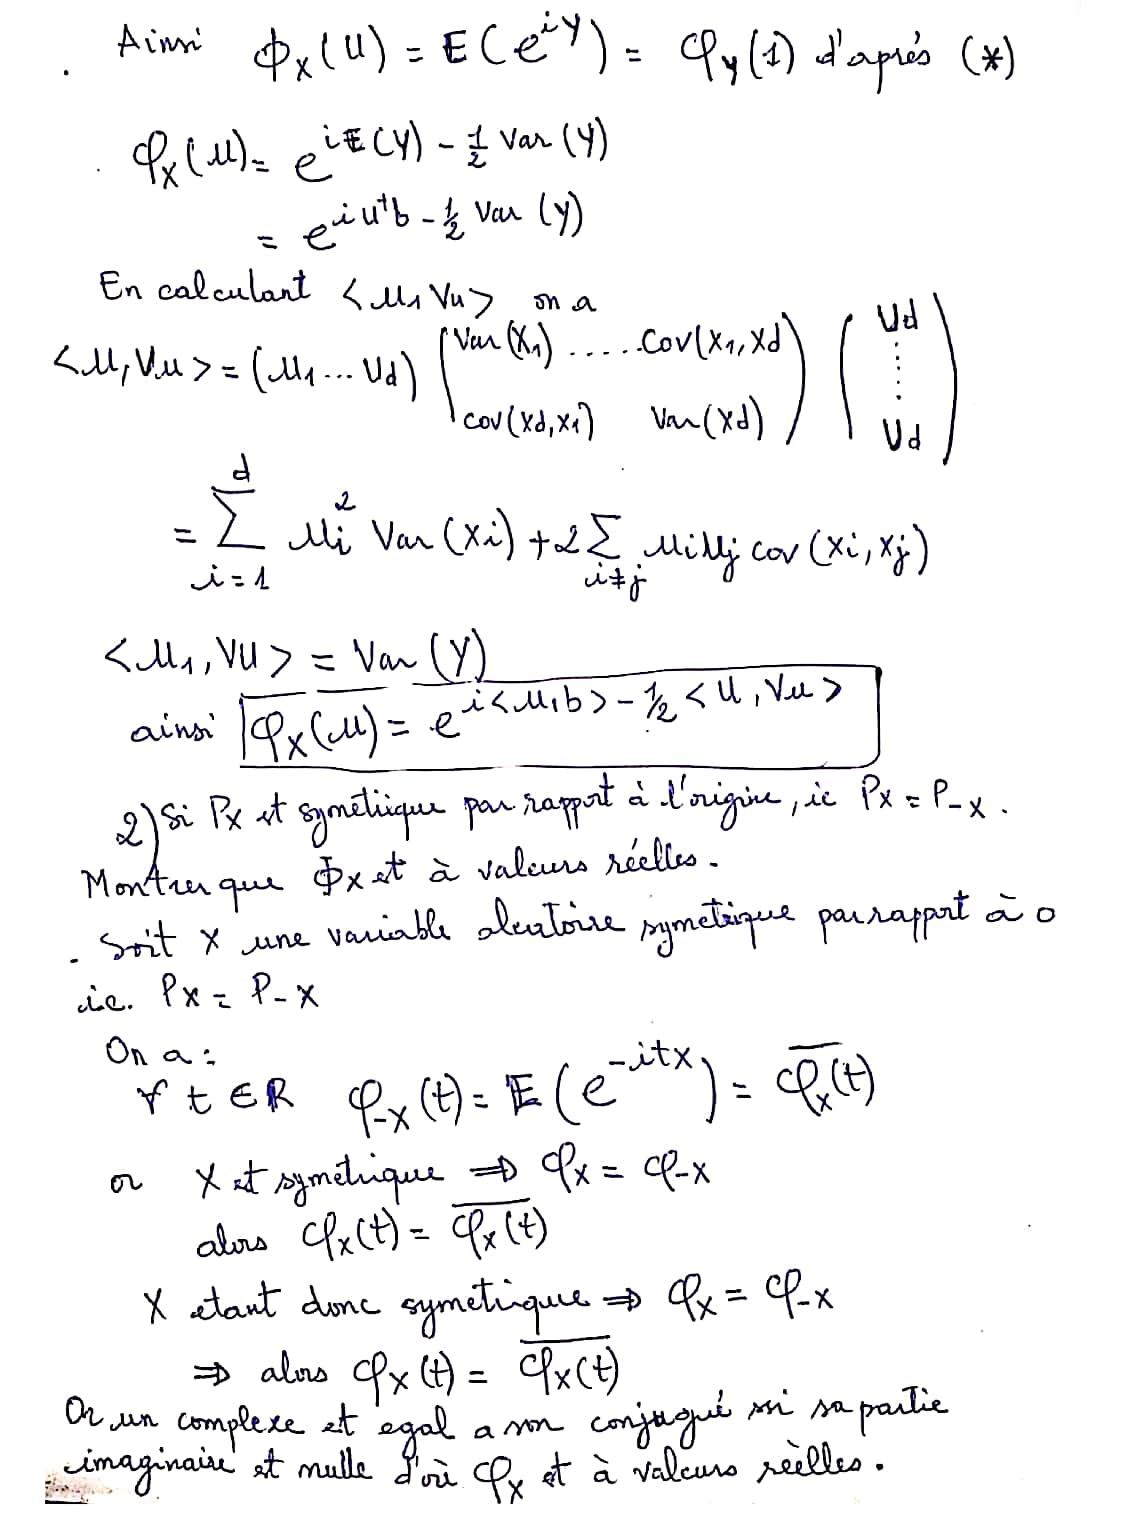 . Ainsi ϕ_X(U) = E(e^{iY}) = φ_Y(1) d'aprés (*)
. φ_X(u) = e^{iE(Y) - 1/2 Var(Y)}
= e^{iu^t b - 1/2 Var(Y)}
En calculant <u, Vu> on a
<u, Vu> = (u1 ... Ud) (Var(X1) ..... Cov(X1, Xd) (Ud
cov(Xd, X1) Var(Xd)) Ud)
= Σ_{i=1}^{d} ui^2 Var(Xi) + 2 Σ_{i≠j} ui uj cov(Xi, Xj)
<u, VU> = Var(Y)
ainsi φ_X(u) = e^{i<u,b> - 1/2 <U, Vu>}
2) Si Px est symétrique par rapport à l'origine, ie Px = P-X.
Montrer que ϕx est à valeurs réelles.
. Soit X une variable aleatoire symetrique par rapport à 0
i.e. Px = P-X
On a :
∀ t ∈ R φ_{-X}(t) = E(e^{-itX}) = \overline{φ_X(t)}
or X est symétrique ⇒ φ_X = φ_{-X}
alors φ_X(t) = \overline{φ_X(t)}
X etant donc symetrique ⇒ φ_X = φ_{-X}
⇒ alors φ_X(t) = \overline{φ_X(t)}
Or un complexe est egal a son conjugué ssi sa partie
imaginaire est nulle d'où φ_X est à valeurs réelles.